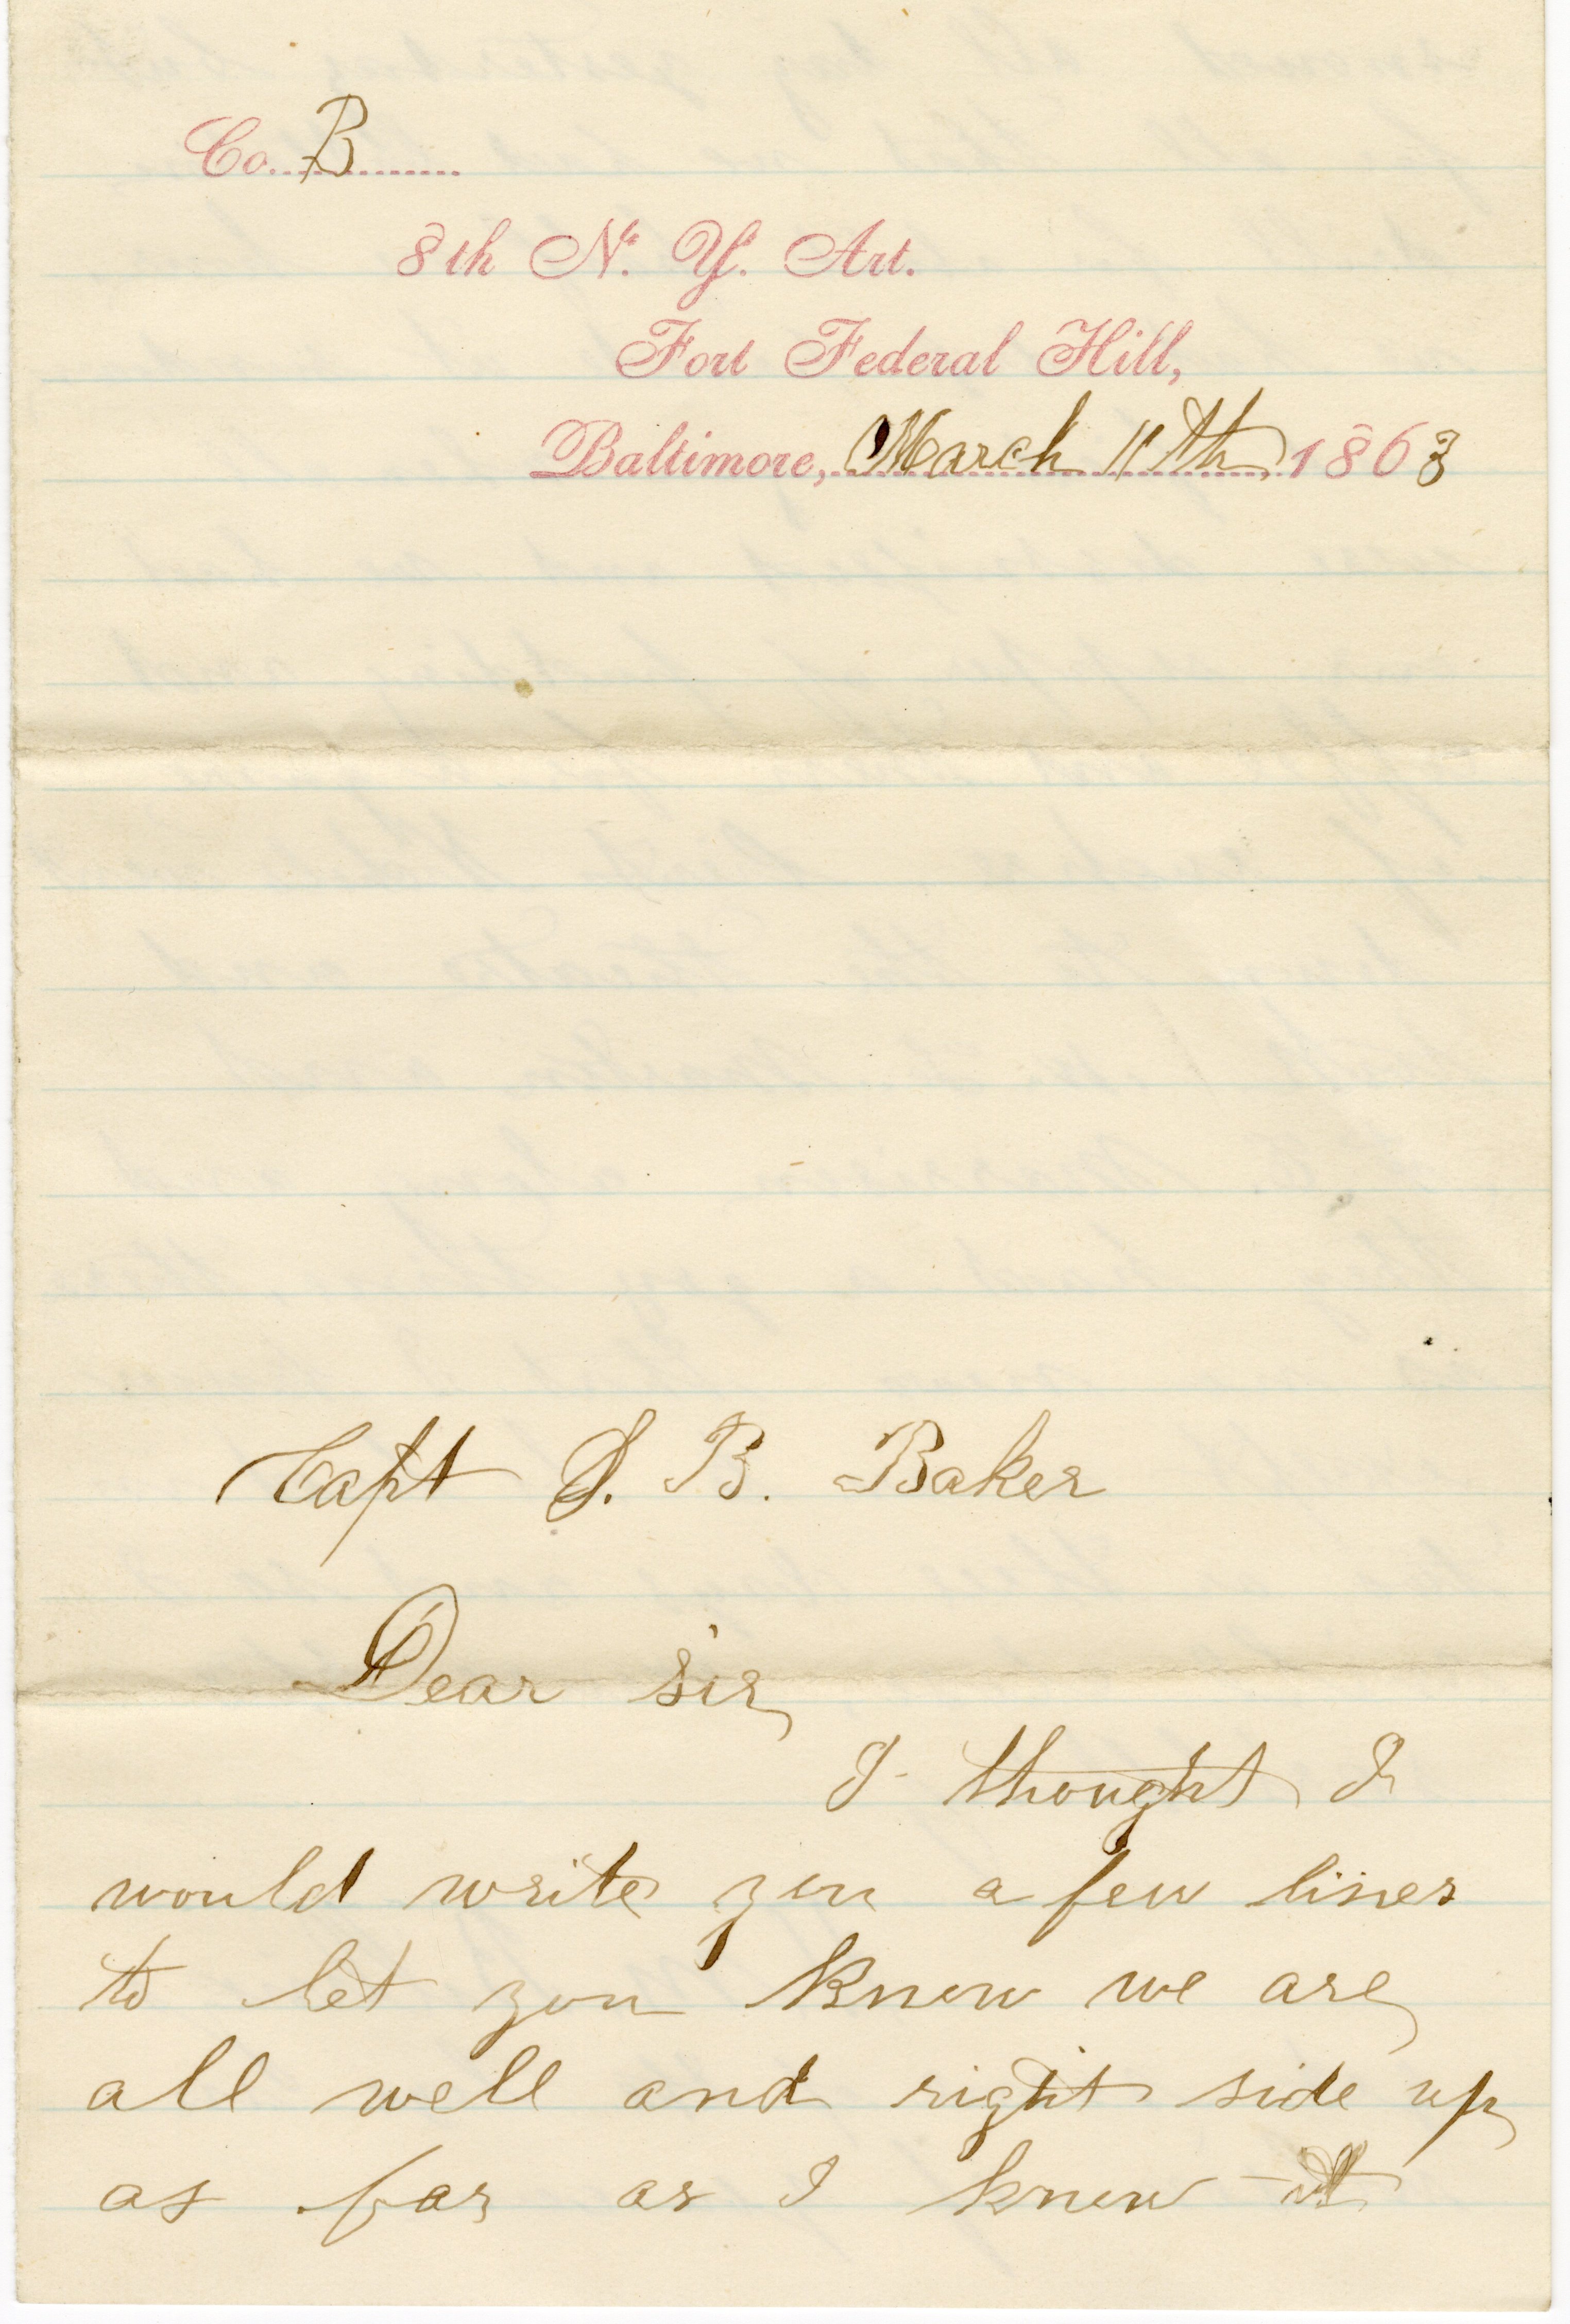 Co. B
8th N. Y. Art.
Fort Federal Hill,
Baltimore, March 11th 1863
Capt S. B. Baker
Dear sir
I thought I
would write you a few lines
to let you know we are
all well and right side up
as far as I know